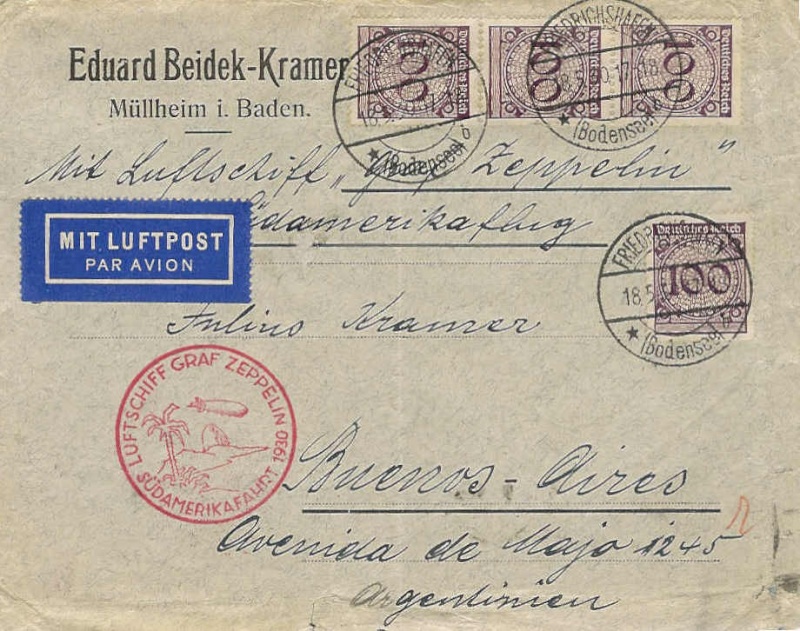 Eduard Beidek-Kramer
Müllheim i. Baden.
100
Deutsches Reich
100
Deutsches Reich
100
Deutsches Reich
FRIEDRICHSHAFEN
18.5.30.17-18
* (Bodensee) b
Mit Luftschiff „Graf Zeppelin"
Südamerikaflug
MIT LUFTPOST
PAR AVION
Deutsches Reich
100
18.5
* (Bodensee)
Julius Kramer
LUFTSCHIFF GRAF ZEPPELIN
SÜDAMERIKAFAHRT 1930
Buenos-Aires
Avenida de Majo 1245
Argentinien